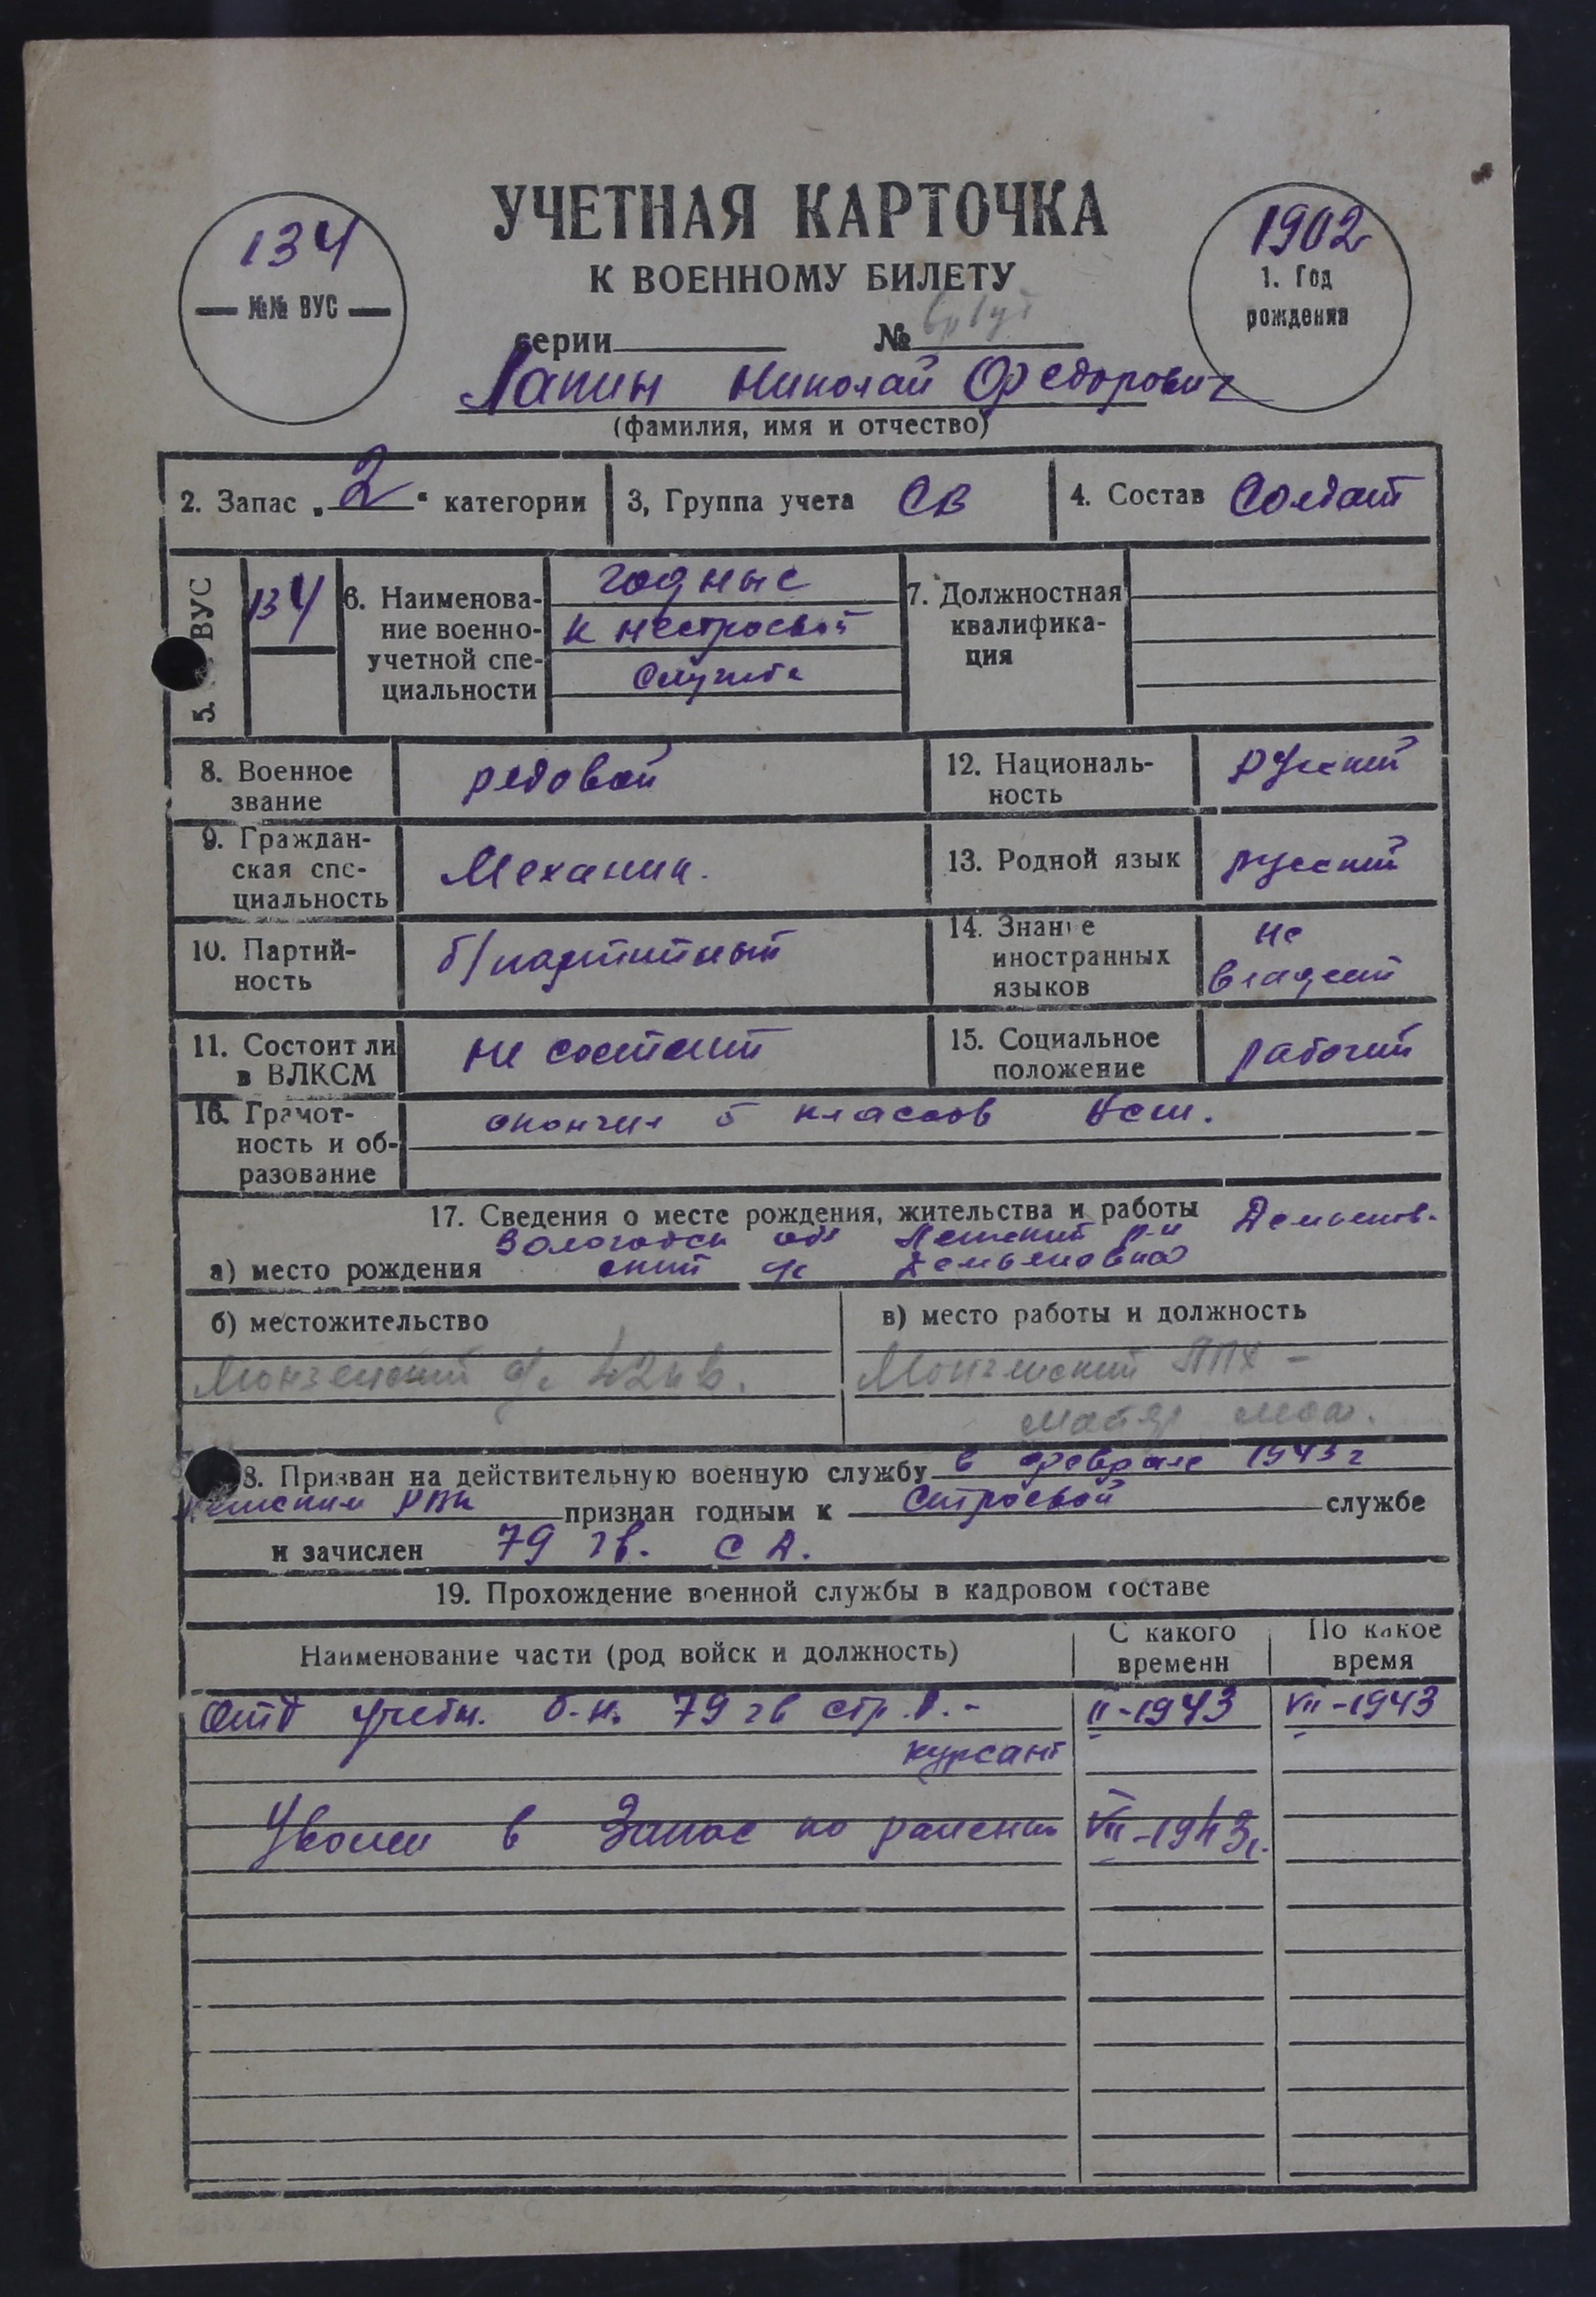 УЧЕТНАЯ КАРТОЧКА
К ВОЕННОМУ БИЛЕТУ
134
№№ ВУС
1902
1. Год
рождения
серии №
Лапин Николай Федорович
(фамилия, имя и отчество)
2. Запас „2“ категории
3, Группа учета СВ
4. Состав Солдат
5. ВУС
134
6. Наименова-
ние военно-
учетной спе-
циальности
годные
к нестроевой
службе
7. Должностная
квалифика-
ция
8. Военное
звание
рядовой
12. Националь-
ность
русский
9. Граждан-
ская спе-
циальность
Механик.
13. Родной язык
русский
10. Партий-
ность
б/партийный
14. Знание
иностранных
языков
не
владеет
11. Состоит ли
в ВЛКСМ
не состоит
15. Социальное
положение
рабочий
16. Грамот-
ность и об-
разование
окончил 5 классов
17. Сведения о месте рождения, жительства и работы
Вологодск обл р-н Демьянов-
а) место рождения ский Демьяновка
б) местожительство
Монзенский
в) место работы и должность
Монзенский ЛПХ -
18. Призван на действительную военную службу в феврале 1943 г
РВК признан годным к строевой службе
и зачислен 79 гв. с д.
19. Прохождение военной службы в кадровом составе
Наименование части (род войск и должность)
С какого
времени
По какое
время
Отд учебн. б-н. 79 гв стр. д. - II-1943 VII-1943
курсант
Уволен в Запас по ранению VII-1943г.